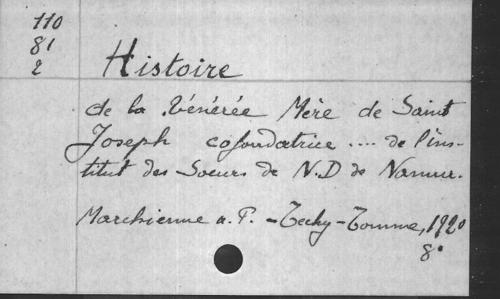 110
81
2
Histoire
de la Vénérée Mère de Saint
Joseph cofondatrice .... de l'ins-
titut des Soeurs de N.D de Namur.
Marchienne a. P. - Techy-Tomme, 1920
8°